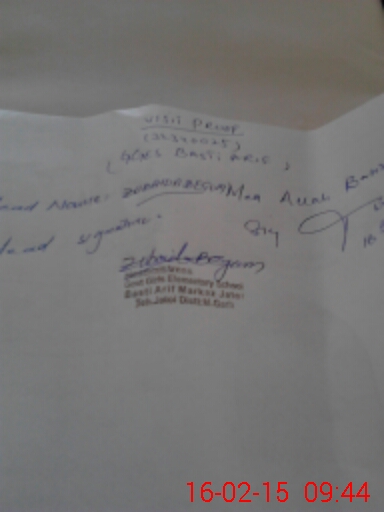 VISIT PROOF
(32320025)
(GGES BASTI ARIF)
Head Name. ZUBAIDA BEGUM
Head signature.
Sig
Zubaida Begum
Headmistress
Govt Girls Elementary School
Basti Arif Markaz Jatoi
Teh.Jatoi Distt M.Garh
16-02-15 09:44